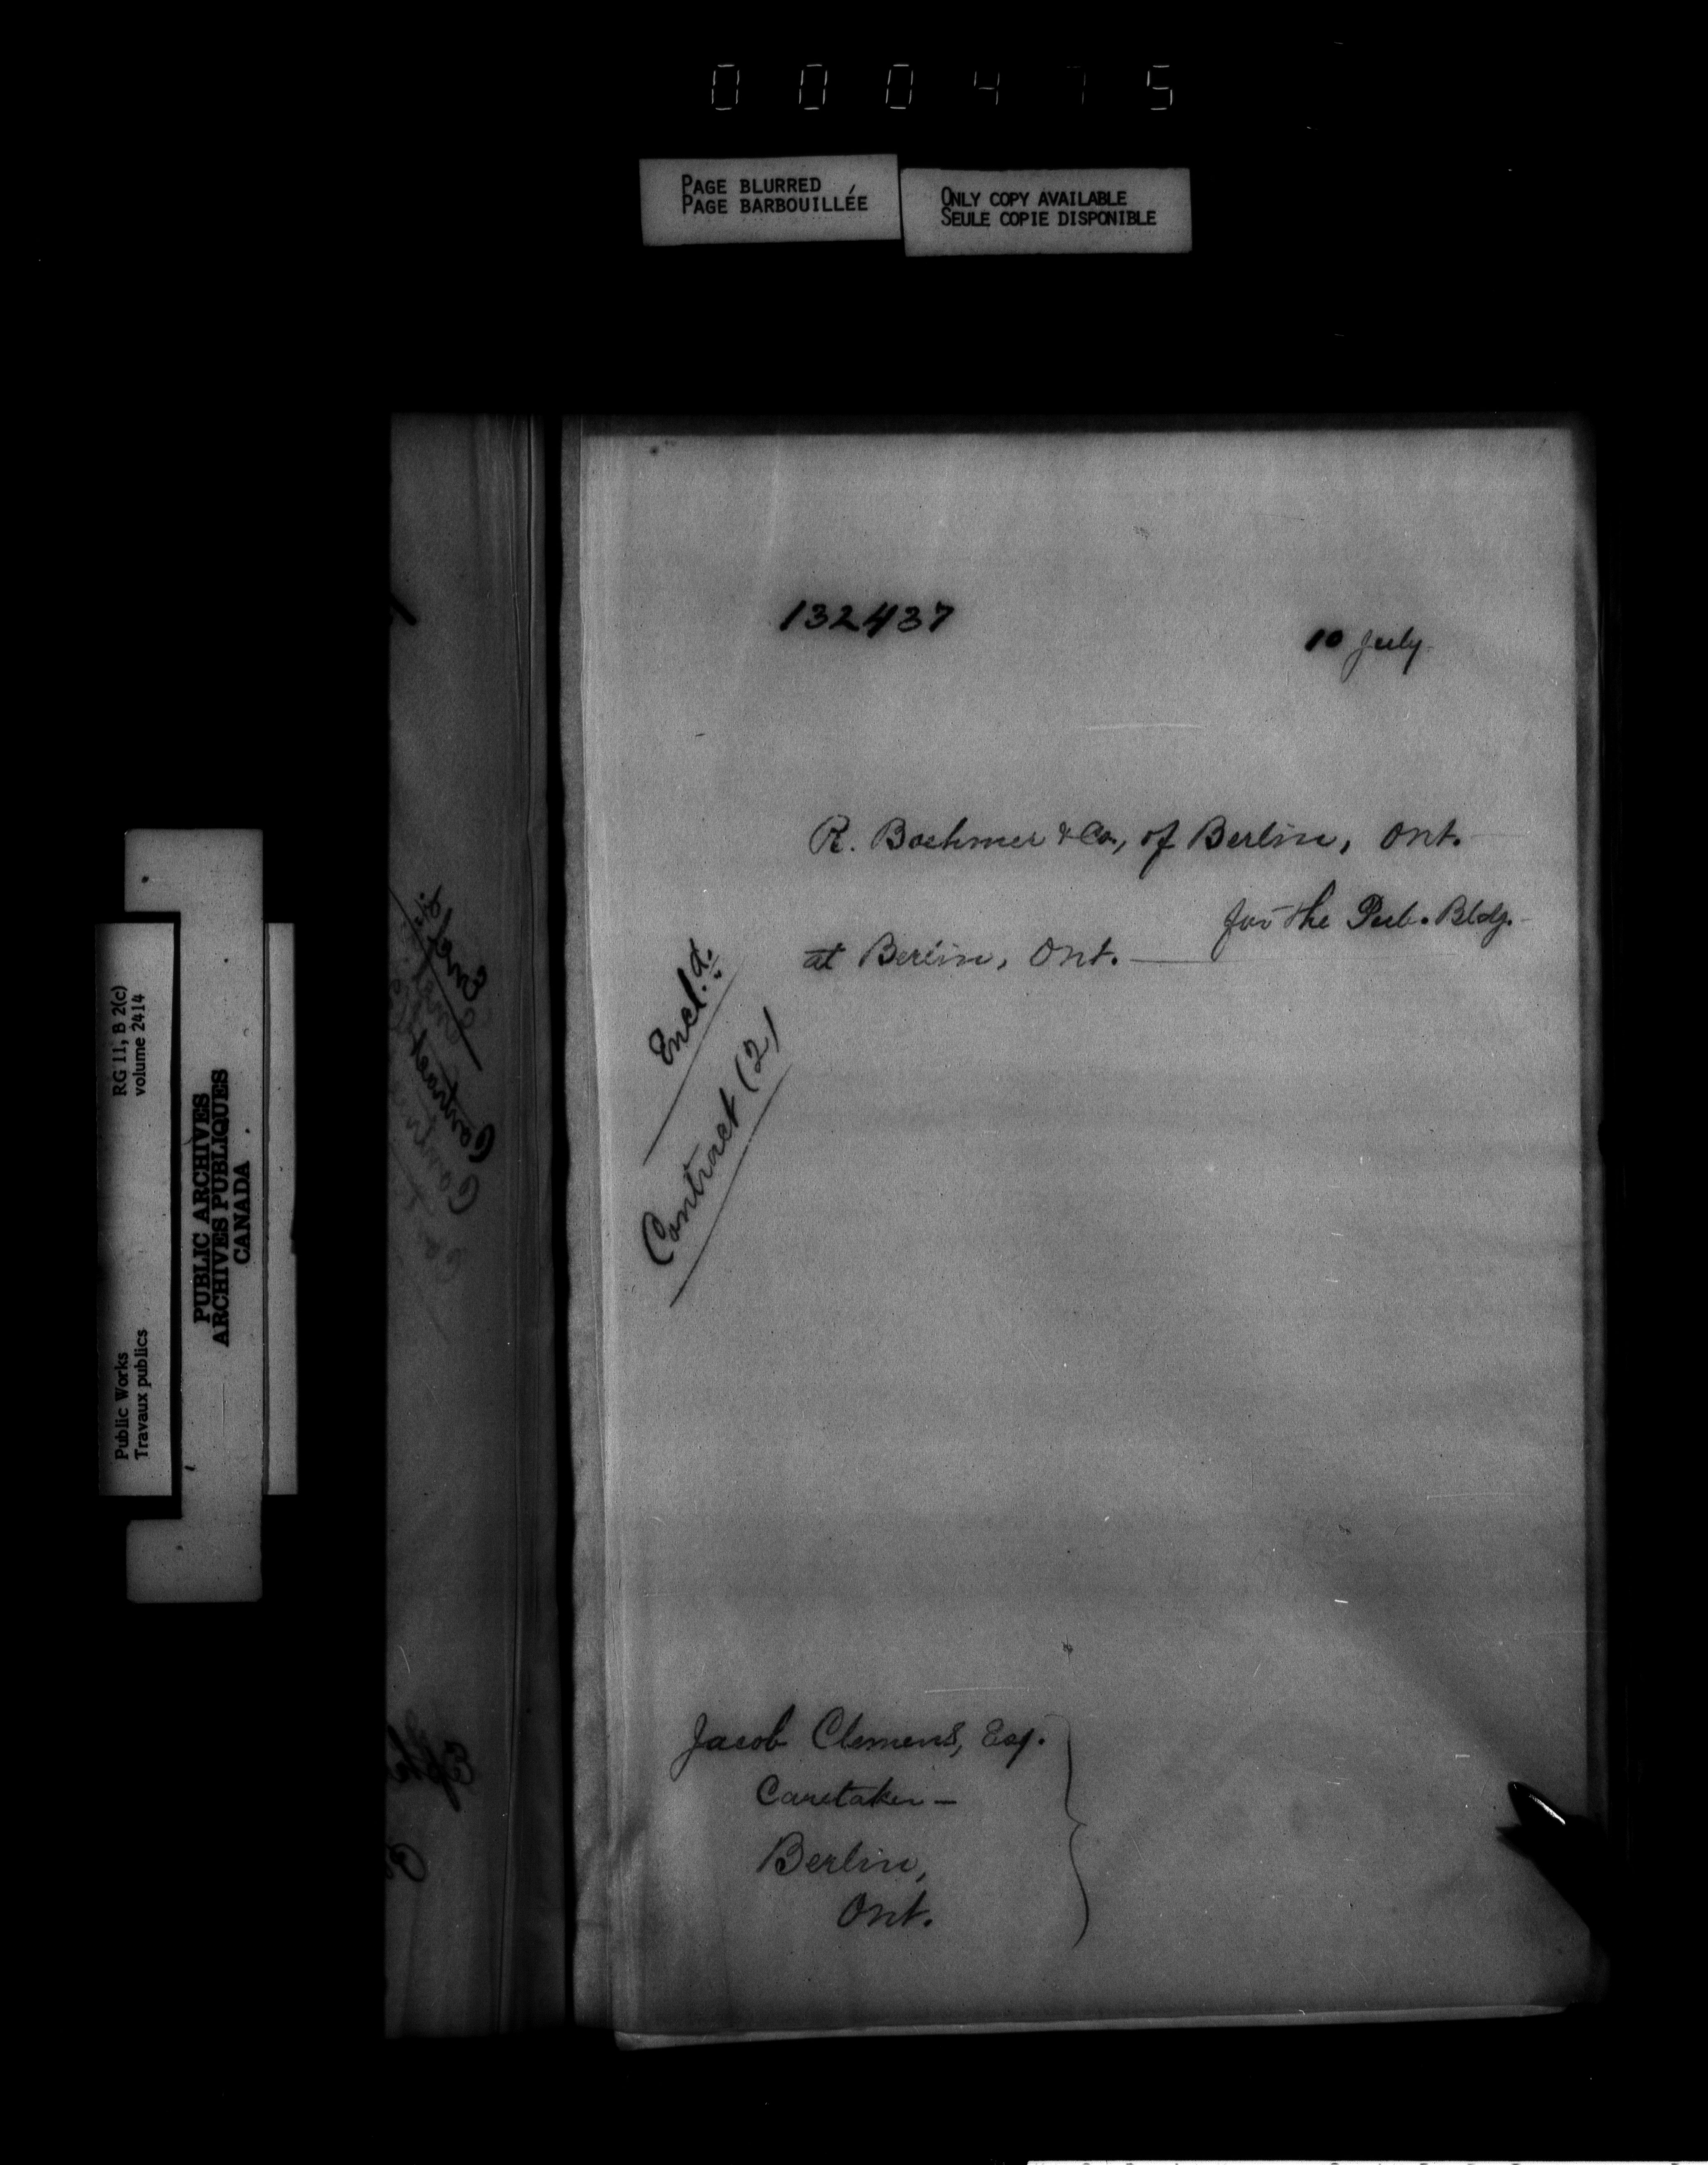 000475
PAGE BLURRED
PAGE BARBOUILLÉE
ONLY COPY AVAILABLE
SEULE COPIE DISPONIBLE
RG 11, B 2(c)
volume 2414
Public Works
Travaux publics
PUBLIC ARCHIVES
ARCHIVES PUBLIQUES
CANADA
132437
10 July
R. Boehmer & Co., of Berlin, Ont.
for the Pub. Bldg.
at Berlin, Ont.
Encl.d.
Contract (2)
Jacob Clemens, Esq.
Caretaker —
Berlin,
Ont.